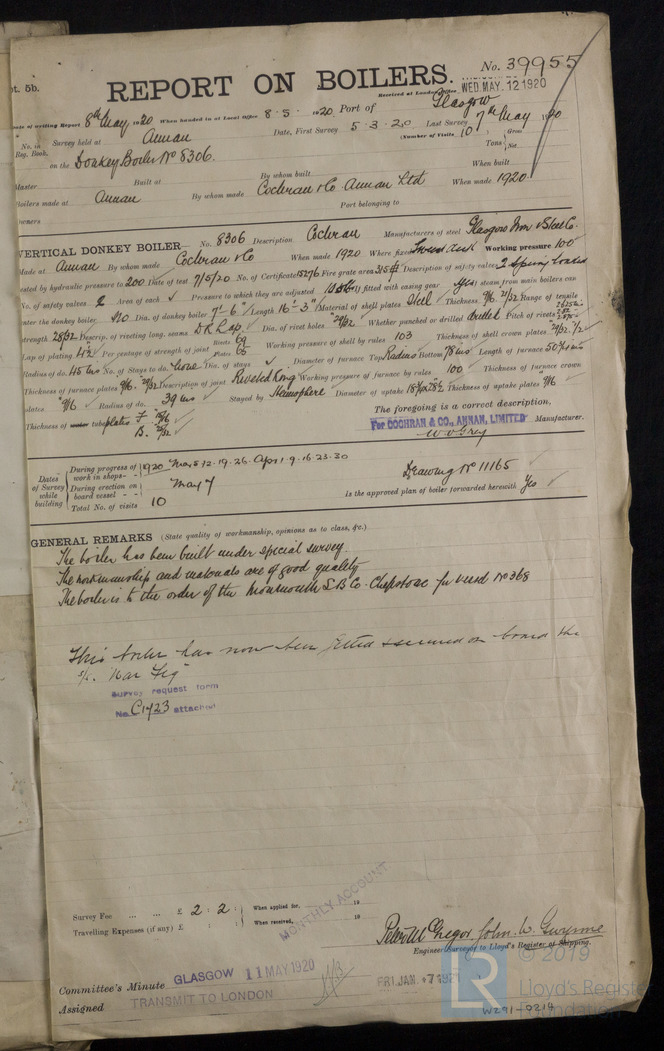 pt. 5b.
REPORT ON BOILERS.
No. 39955
Received at London Office WED. MAY. 12 1920
Date of writing Report 8th May 1920 When handed in at Local Office 8 . 5 . 1920 Port of Glasgow
No. in Reg. Book. Survey held at Annan Date, First Survey 5 . 3 . 20 Last Survey 7th May 1920
(Number of Visits 10) Gross Tons Net
on the Donkey Boiler No 8306.
Master Built at By whom built When built
Boilers made at Annan By whom made Cochran & Co Annan Ltd When made 1920
Owners Port belonging to
VERTICAL DONKEY BOILER No. 8306 Description Cochran Manufacturers of steel Glasgow Iron & Steel Co.
Made at Annan By whom made Cochran & Co When made 1920 Where fixed Working pressure 100
tested by hydraulic pressure to 200 Date of test 7/5/20 No. of Certificate 15276 Fire grate area Description of safety valves 2 Spring loaded
No. of safety valves 2 Area of each ✓ Pressure to which they are adjusted If fitted with casing gear yes If steam from main boilers can
enter the donkey boiler No Dia. of donkey boiler 7'-6" Length 16'-3" Material of shell plates Steel Thickness Range of tensile
strength 28/32 Descrip. of riveting long. seams D R Lap Dia. of rivet holes 29/32 Whether punched or drilled drilled Pitch of rivets
Lap of plating Per centage of strength of joint Rivets 69 Plates 66 Working pressure of shell by rules 103 Thickness of shell crown plates
Radius of do. 45 ins No. of Stays to do. None Dia. of stays ✓ Diameter of furnace Top Radius Bottom 78 ins Length of furnace
Thickness of furnace plates Description of joint Riveted Ring Working pressure of furnace by rules 100 Thickness of furnace crown
plates 9/16 Radius of do. 39 ins Stayed by Hemisphere Diameter of uptake Thickness of uptake plates 9/16
Thickness of tube plates F. B.
The foregoing is a correct description,
For COCHRAN & CO., ANNAN, LIMITED Manufacturer.
Dates of Survey while building
During progress of work in shops - - 1920 Mar 5 12. 19. 26. Apr 1. 9. 16. 23. 30
During erection on board vessel - - May 7
Total No. of visits 10
Drawing No 11165
Is the approved plan of boiler forwarded herewith Yes
GENERAL REMARKS (State quality of workmanship, opinions as to class, &c.)
The boiler has been built under special survey.
The workmanship and materials are of good quality
The boiler is to the order of the Monmouth S.B. Co. Chepstow for vessel No 368
This boiler has now been fitted & secured on board the
s/s. War Fig
Survey request form
No. C1723 attached
Survey Fee ... ... £ 2 : 2 : When applied for, 19
Travelling Expenses (if any) £ : : When received, 19
MONTHLY ACCOUNT
Peter McGregor. John. W. Gwynne
Engineer Surveyor to Lloyd's Register of Shipping.
Committee's Minute GLASGOW 11 MAY 1920
FRI. JAN. 7 1921
Assigned TRANSMIT TO LONDON
W291-0219
LR
© 2019
Lloyd's Register
Foundation